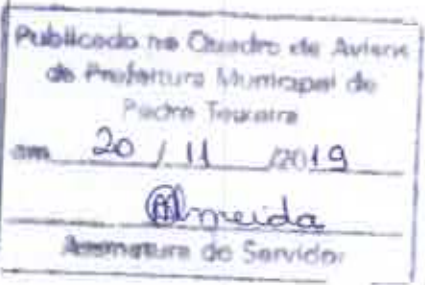 Publicado no Quadro de Avisos
da Prefeitura Municipal de
Pedro Teixeira
em 20 / 11 /2019
Almeida
Assinatura do Servidor